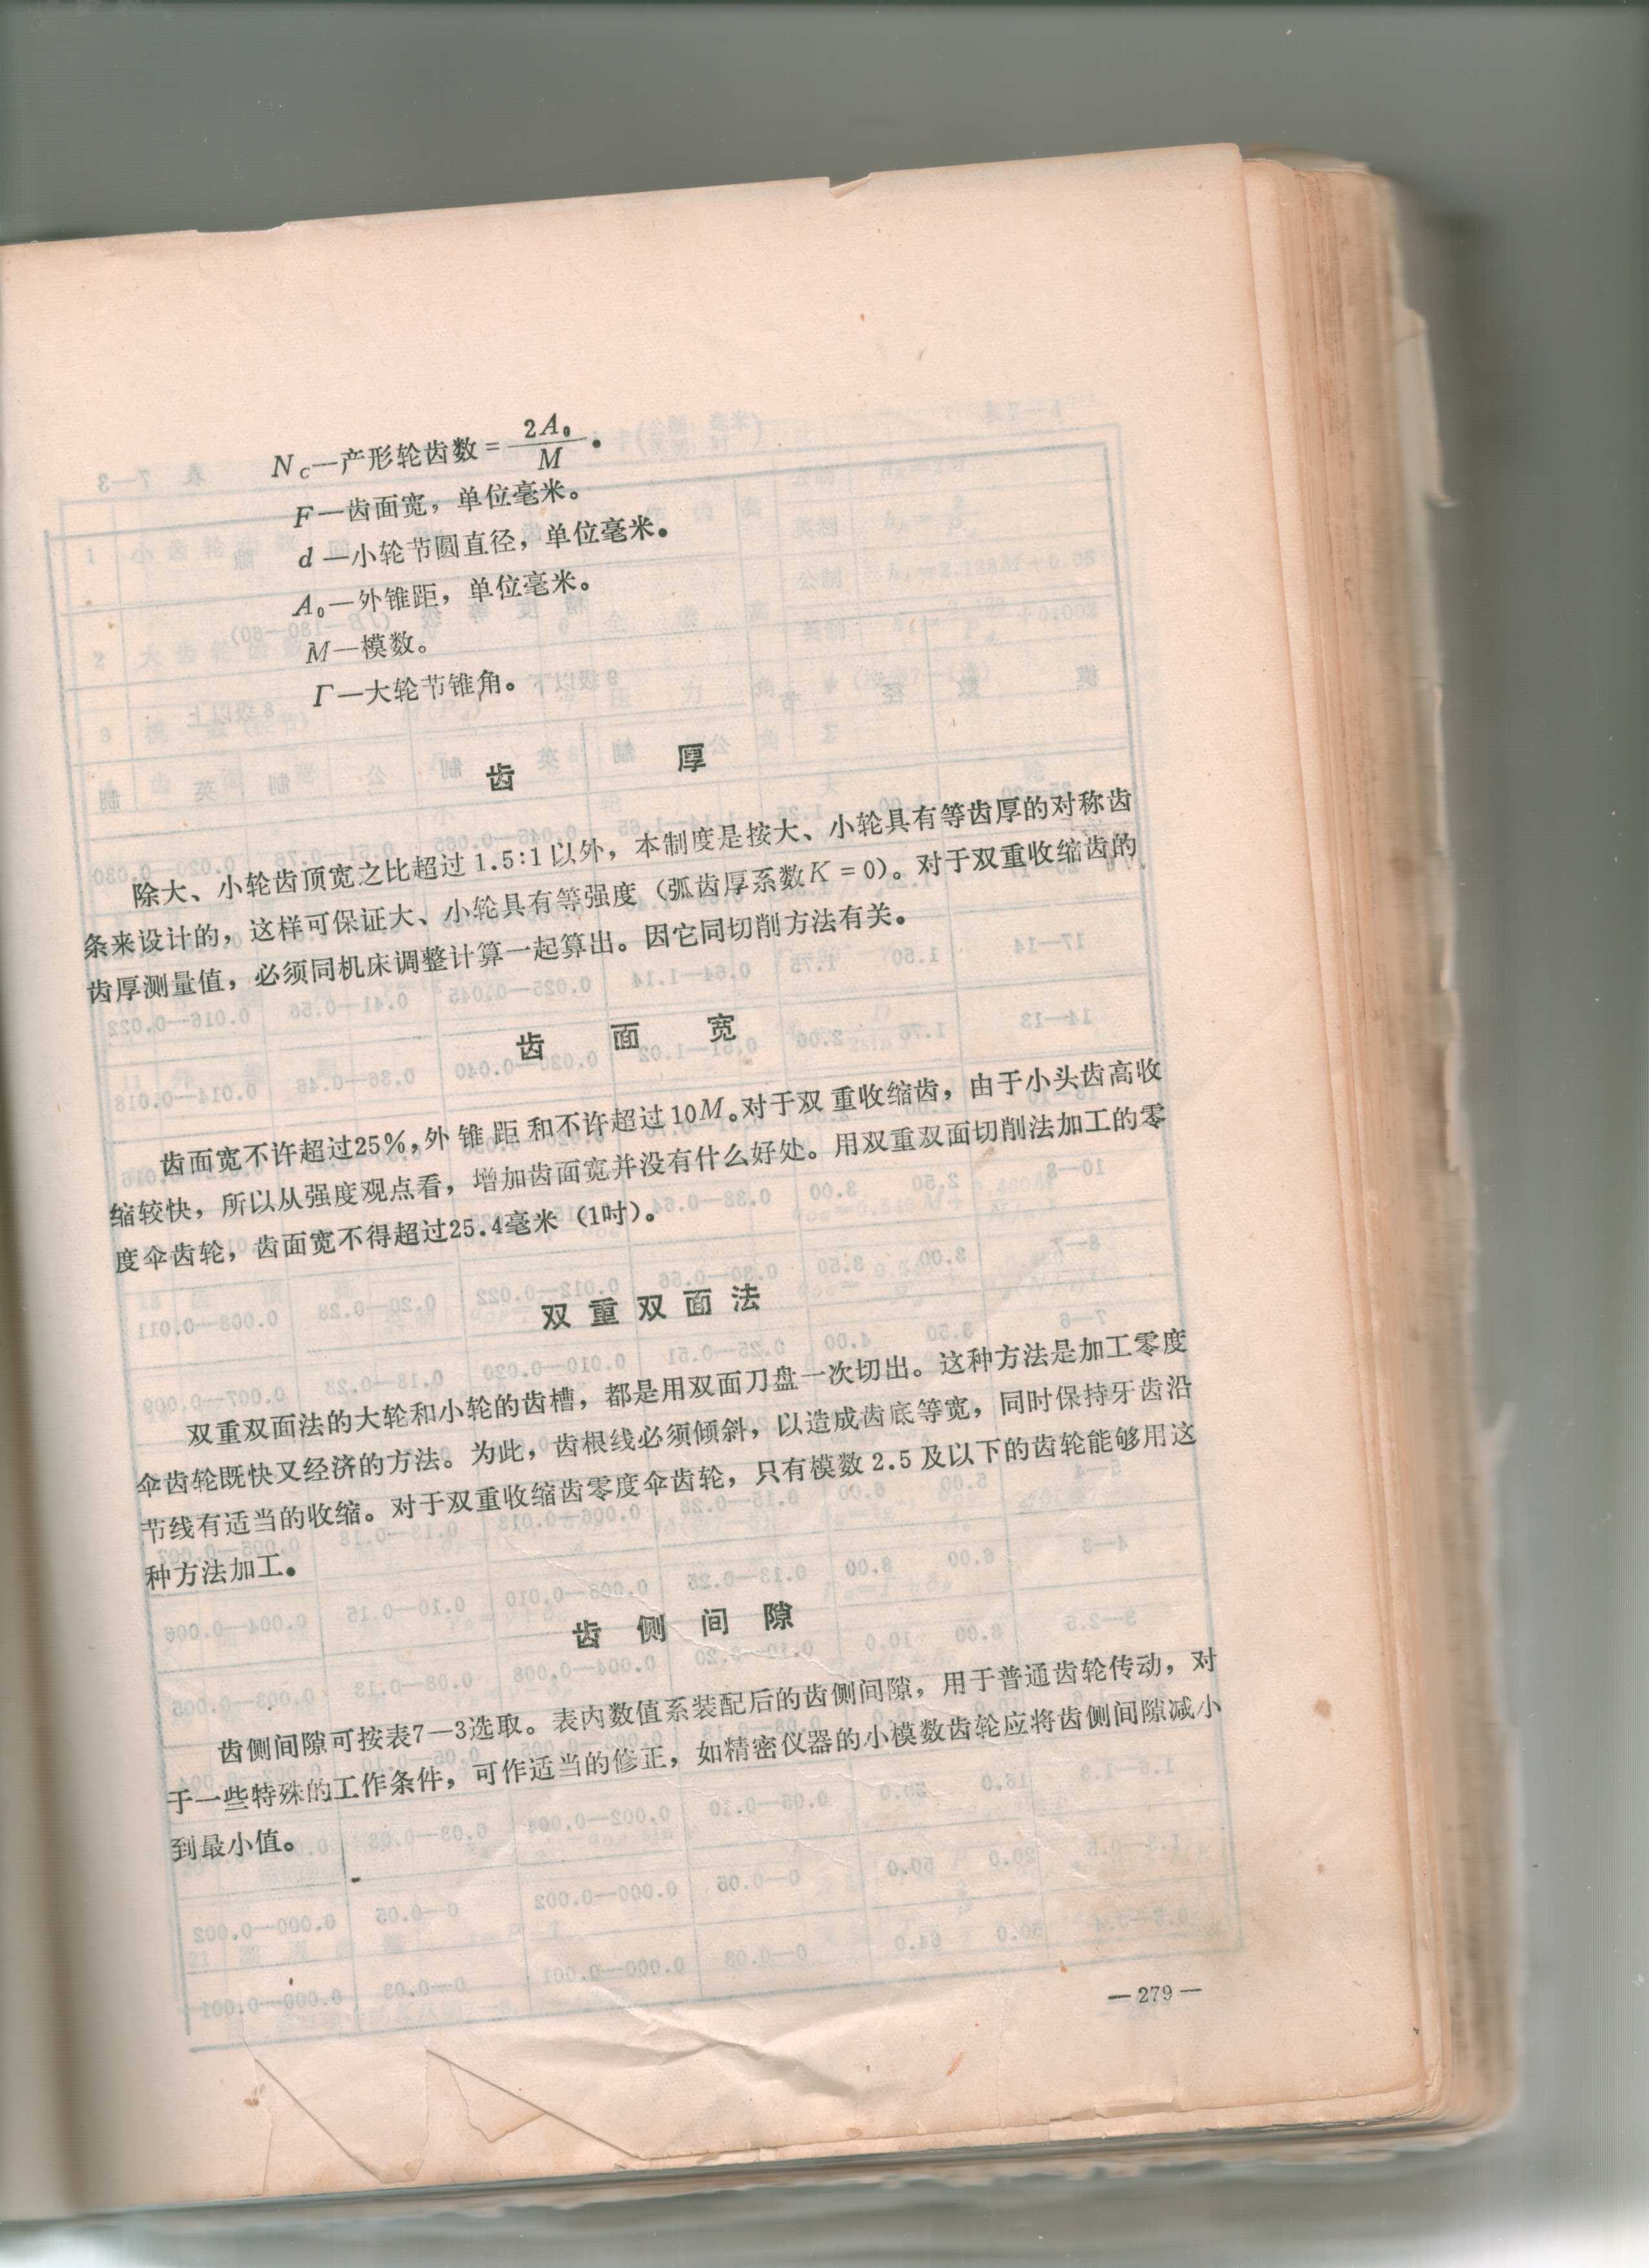 N_C—产形轮齿数 = 2A₀/M。
F—齿面宽，单位毫米。
d—小轮节圆直径，单位毫米。
A₀—外锥距，单位毫米。
M—模数。
Γ—大轮节锥角。
齿 厚
除大、小轮齿顶宽之比超过1.5:1以外，本制度是按大、小轮具有等齿厚的对称齿
条来设计的，这样可保证大、小轮具有等强度（弧齿厚系数K = 0）。对于双重收缩齿的
齿厚测量值，必须同机床调整计算一起算出。因它同切削方法有关。
齿 面 宽
齿面宽不许超过25%,外锥距和不许超过10M。对于双重收缩齿，由于小头齿高收
缩较快，所以从强度观点看，增加齿面宽并没有什么好处。用双重双面切削法加工的零
度伞齿轮，齿面宽不得超过25.4毫米（1吋）。
双重双面法
双重双面法的大轮和小轮的齿槽，都是用双面刀盘一次切出。这种方法是加工零度
伞齿轮既快又经济的方法。为此，齿根线必须倾斜，以造成齿底等宽，同时保持牙齿沿
节线有适当的收缩。对于双重收缩齿零度伞齿轮，只有模数2.5及以下的齿轮能够用这
种方法加工。
齿侧间隙
齿侧间隙可按表7—3选取。表内数值系装配后的齿侧间隙，用于普通齿轮传动，对
于一些特殊的工作条件，可作适当的修正，如精密仪器的小模数齿轮应将齿侧间隙减小
到最小值。
—279—